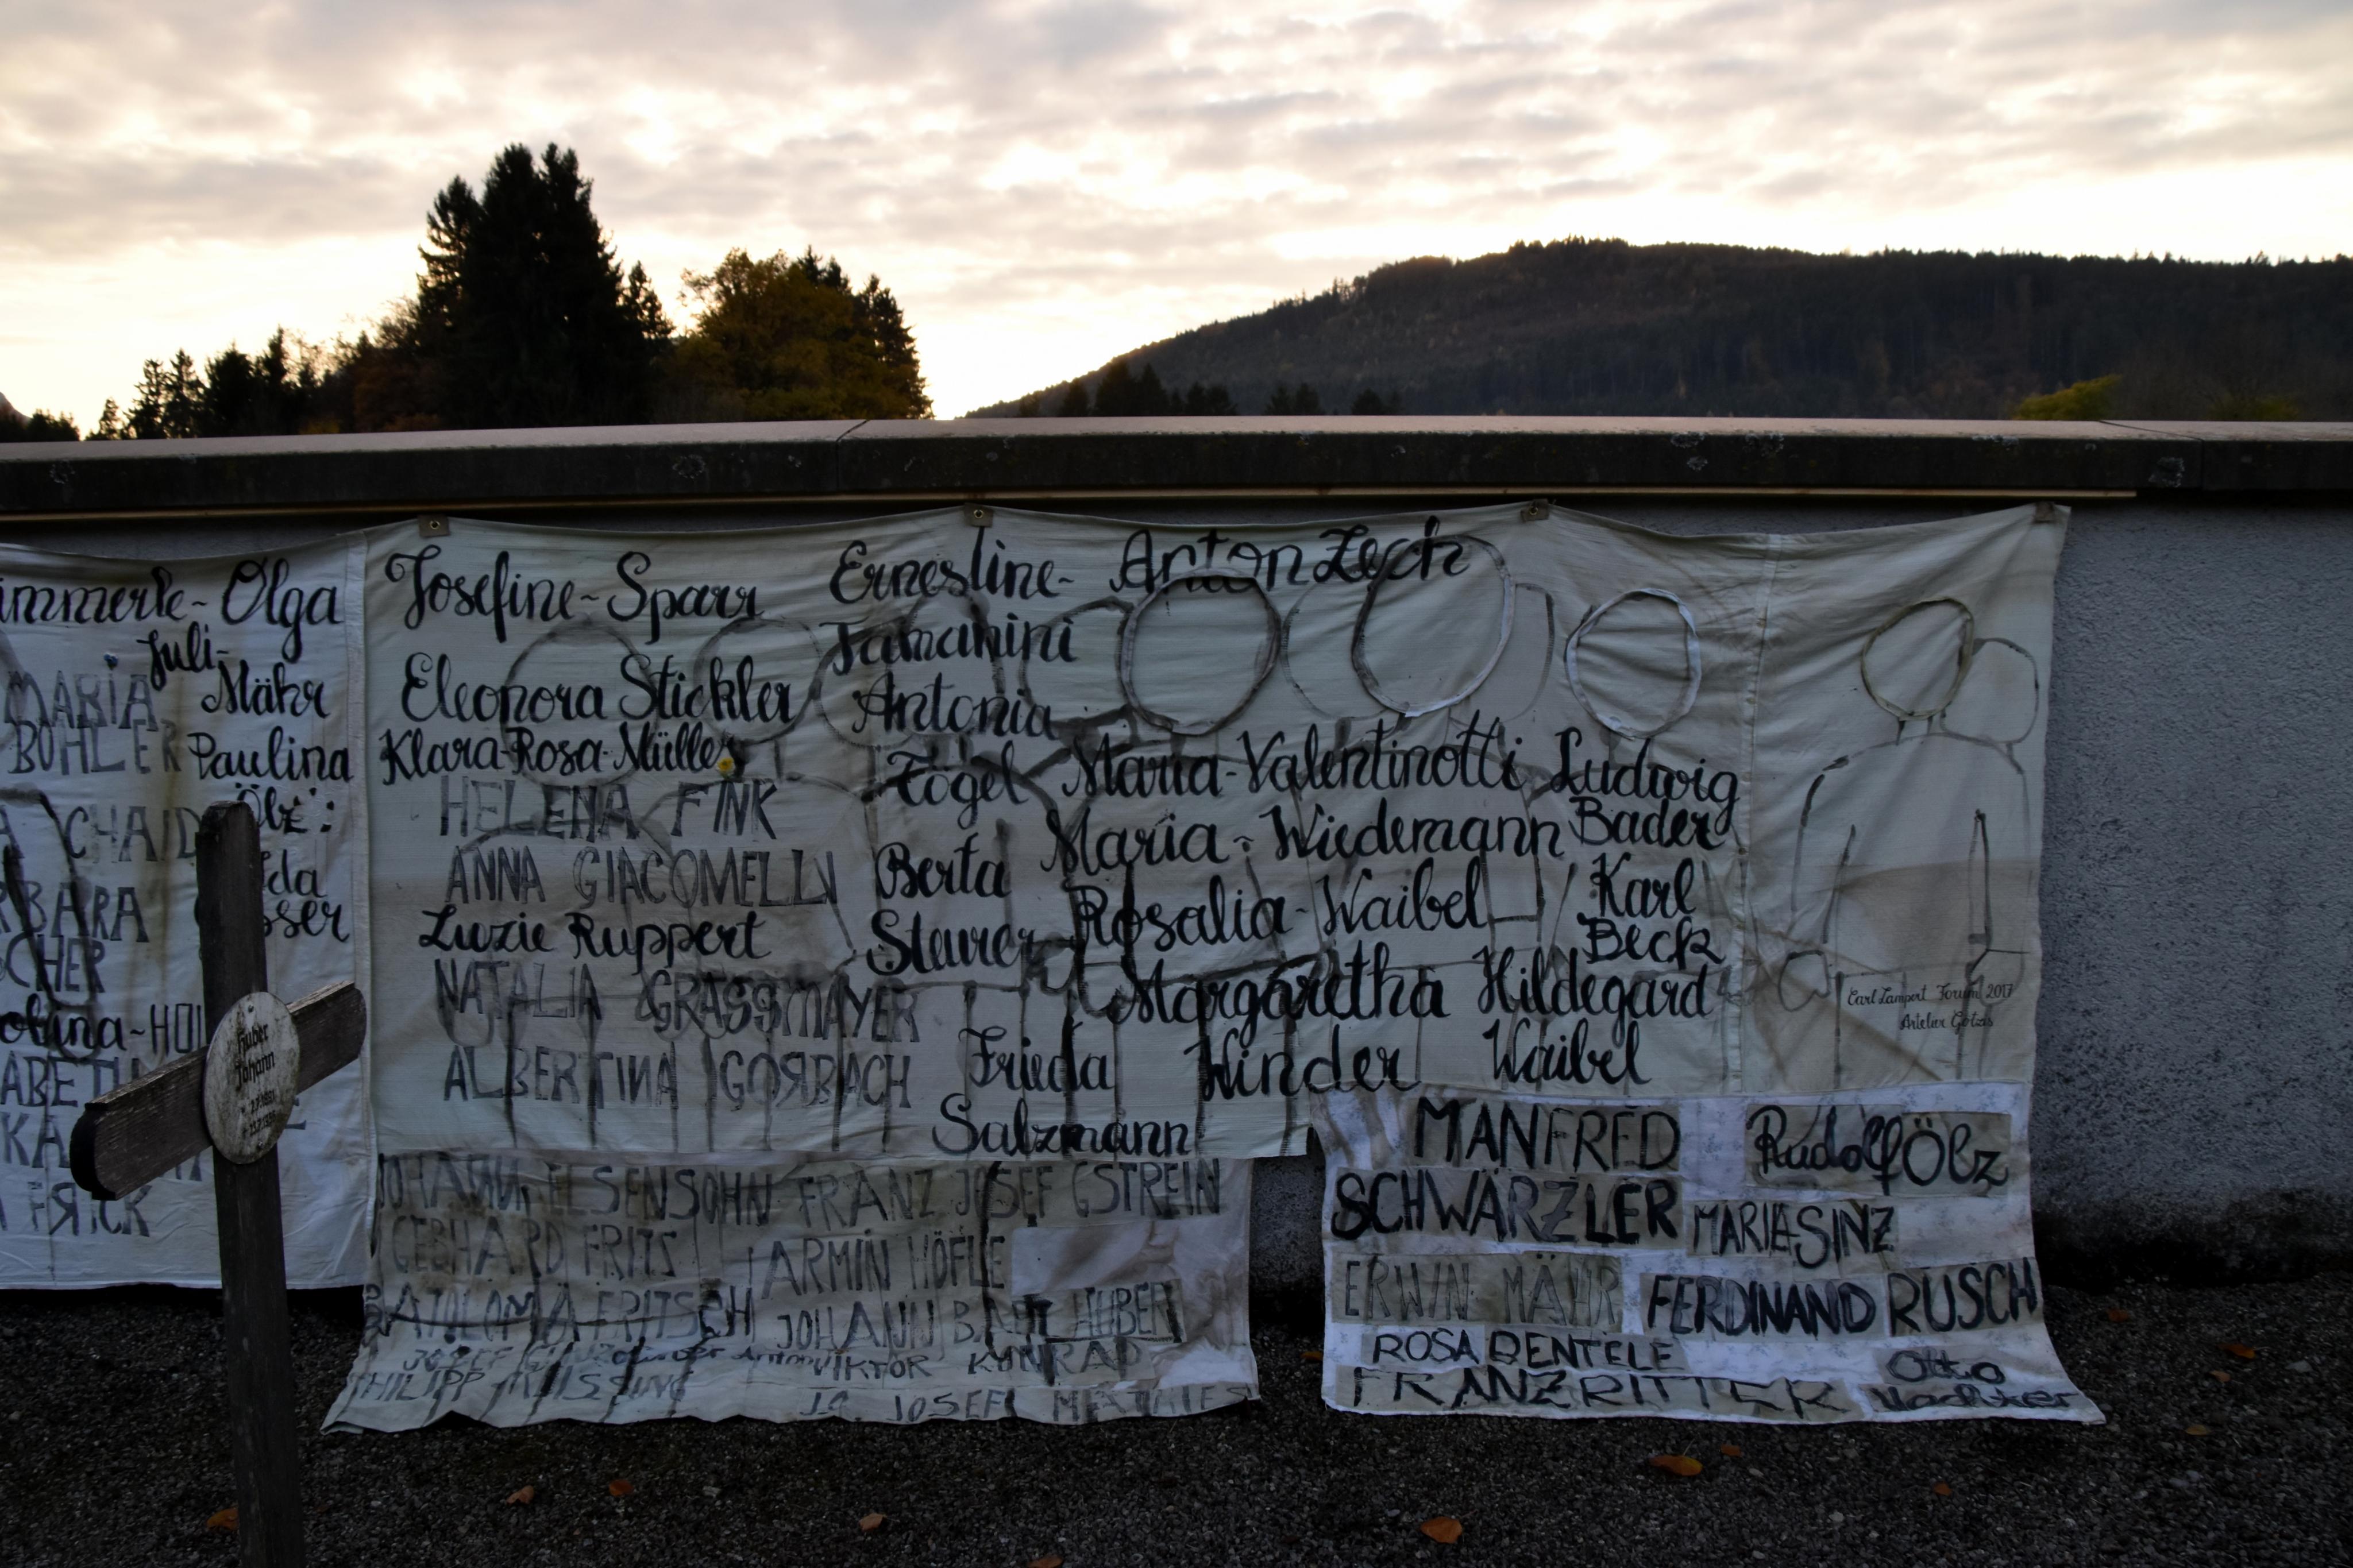 Olga
Juli
Mähr
MARIA
BÖHLER
Paulina
Ölz
Josefine-Sparr
Eleonora Stickler
Klara-Rosa-Müller
HELENA FINK
ANNA GIACOMELLI
Luzie Ruppert
NATALIA GRASSMAYER
ALBERTINA GORBACH
Ernestine-
Tamanini
Antonia
Fögel
Berta
Steurer
Frieda
Salzmann
Anton Zech
Maria-Valentinotti
Maria-Wiedemann
Rosalia-Waibel
Margaretha
Winder
Ludwig
Bader
Karl
Beck
Hildegard
Waibel
Carl Lampert Forum 2017
Artelier Götzis
FRICK
Huber
Johann
JOHANN ELSENSOHN FRANZ JOSEF GSTREIN
GEBHARD FRITS
ARMIN HÖFLE
FRITSCH
JOHANN BAPT HUBER
JOSEF
VIKTOR KONRAD
PHILIPP
JOSEF MATHIES
MANFRED
SCHWÄRZLER
Rudolf Ölz
MARIE SINZ
ERWIN MÄHR
FERDINAND RUSCH
ROSA DENTELE
FRANZ RITTER
Otto